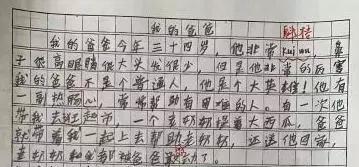 我的爸爸
魁梧
我的爸爸今年三十四岁，他非常kuí wu，鼻
子很高眼睛很大头发很少，但是他非常的厉害
我的爸爸不是个普通人，他是个大英雄！他有
一副热肠心，常常帮助有困难的人。有一次他
带我去逛超市，一个老奶奶提着大西瓜，爸爸
就带着我一起上去帮助老奶奶，还送他回家，
老奶奶和我都被爸爸感动了。